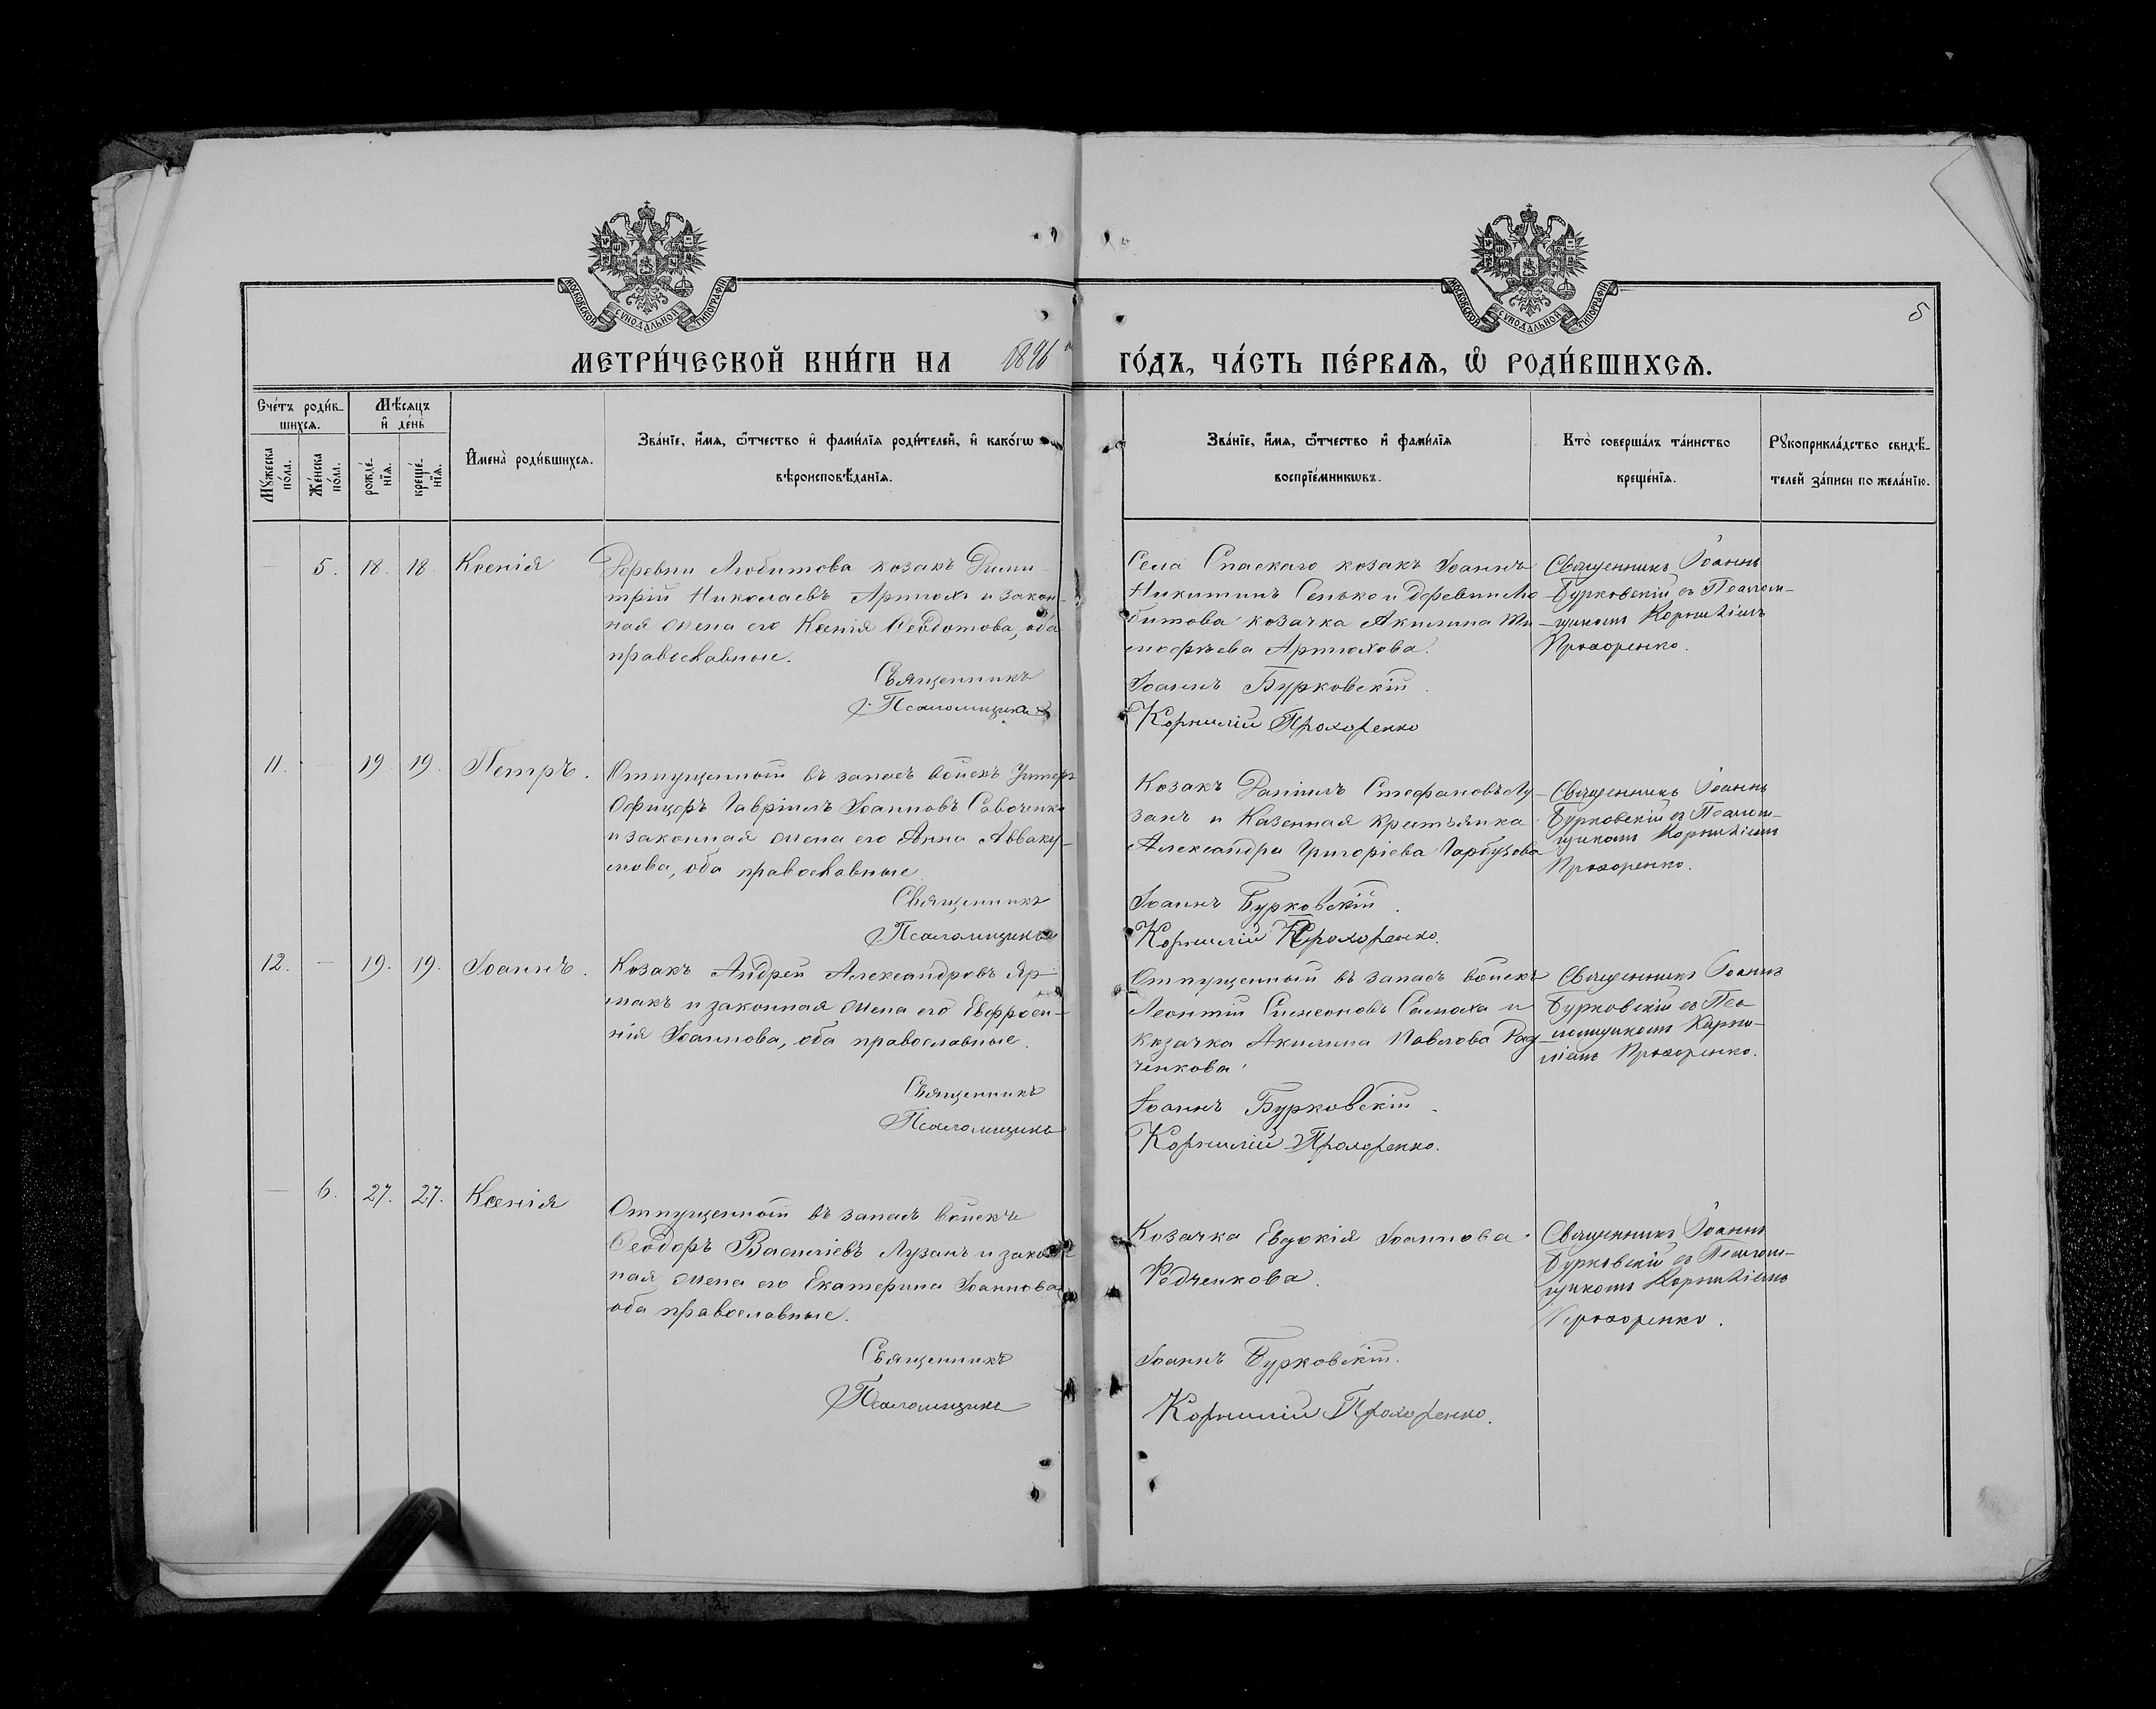 МОСКОВСКОЙ СѴНОДАЛЬНОЙ ТИПОГРАФІИ
МОСКОВСКОЙ СѴНОДАЛЬНОЙ ТИПОГРАФІИ
5
МЕТРИ́ЧЕСКОЙ КНИ́ГИ НА 1896 ГО́ДЪ, ЧА́СТЬ ПЕ́РВАЯ, Ѡ РОДИ́ВШИХСЯ.
Сче́тъ роди́в-
шихся.
Мѣ́сяцъ
и де́нь
Му́жеска
по́ла.
Же́нска
по́ла.
рожде́-
нія.
креще́-
нія.
Имена̀ роди́вшихся.
Зва́ніе, и́мя, ѻ́тчество и фами́лія роди́телей, и како́гѡ
вѣроисповѣ́данія.
Зва́ніе, и́мя, ѻ́тчество и фами́лія
воспріе́мникѡвъ.
Кто̀ соверша́лъ та́инство
креще́нія.
Рꙋкоприкла́дство свидѣ́-
телей за́писи по жела́нію.
— 5. 18. 18. Ксенія
Деревни Любитова козакъ Дими-
трій Николаевъ Артюхъ и закон-
ная жена его Ксенія Ѳеодотова, оба
православные.
Священникъ
Псаломщикъ
Села Спаскаго козакъ Іоаннъ
Никитинъ Сенько и деревни Лю-
битова козачка Акилина Ти-
мофѣева Артюхова.
Іоаннъ Бурковскій.
Корнилій Прохоренко
Священникъ Іоаннъ
Бурковскій съ Псалом-
щикомъ Корниліемъ
Прохоренко.
11. — 19 19. Петръ.
Отпущенной въ запасъ войскъ Унтеръ
Офицеръ Гавріилъ Іоанновъ Савоченко
и законная жена его Анна Авваку-
мова, оба православные
Священникъ
Псаломщикъ
Козакъ Даніилъ Стефановъ Лу-
занъ и Казенная Крестьянка
Александра Григоріева Гарбузова
Іоаннъ Бурковскій.
Корнилій Прохоренко.
Священникъ Іоаннъ
Бурковскій съ Псалом-
щикомъ Корниліемъ
Прохоренко.
12. — 19. 19. Іоаннъ.
Козакъ Андрей Александровъ Яр-
макъ и законная жена его Евфроси-
нія Іоаннова, оба православные.
Священникъ
Псаломщикъ
Отпущенный въ запасъ войскъ
Леонтій Симеоновъ Самоха и
Козачка Акилина Павлова Рад-
ченкова
Іоаннъ Бурковскій.
Корнилій Прохоренко.
Священникъ Іоаннъ
Бурковскій съ Пса-
ломщикомъ Корни-
ліемъ Прохоренко.
— 6. 27. 27. Ксенія
Отпущенной въ запасъ войскъ
Ѳеодоръ Василіевъ Лузанъ и закон-
ная жена его Екатерина Іоаннова
оба православные.
Священникъ
Псаломщикъ
Козачка Евдокія Іоаннова
Редченкова.
Іоаннъ Бурковскій.
Корнилій Прохоренко.
Священникъ Іоаннъ
Бурковскій съ Псалом-
щикомъ Корниліемъ
Прохоренко.